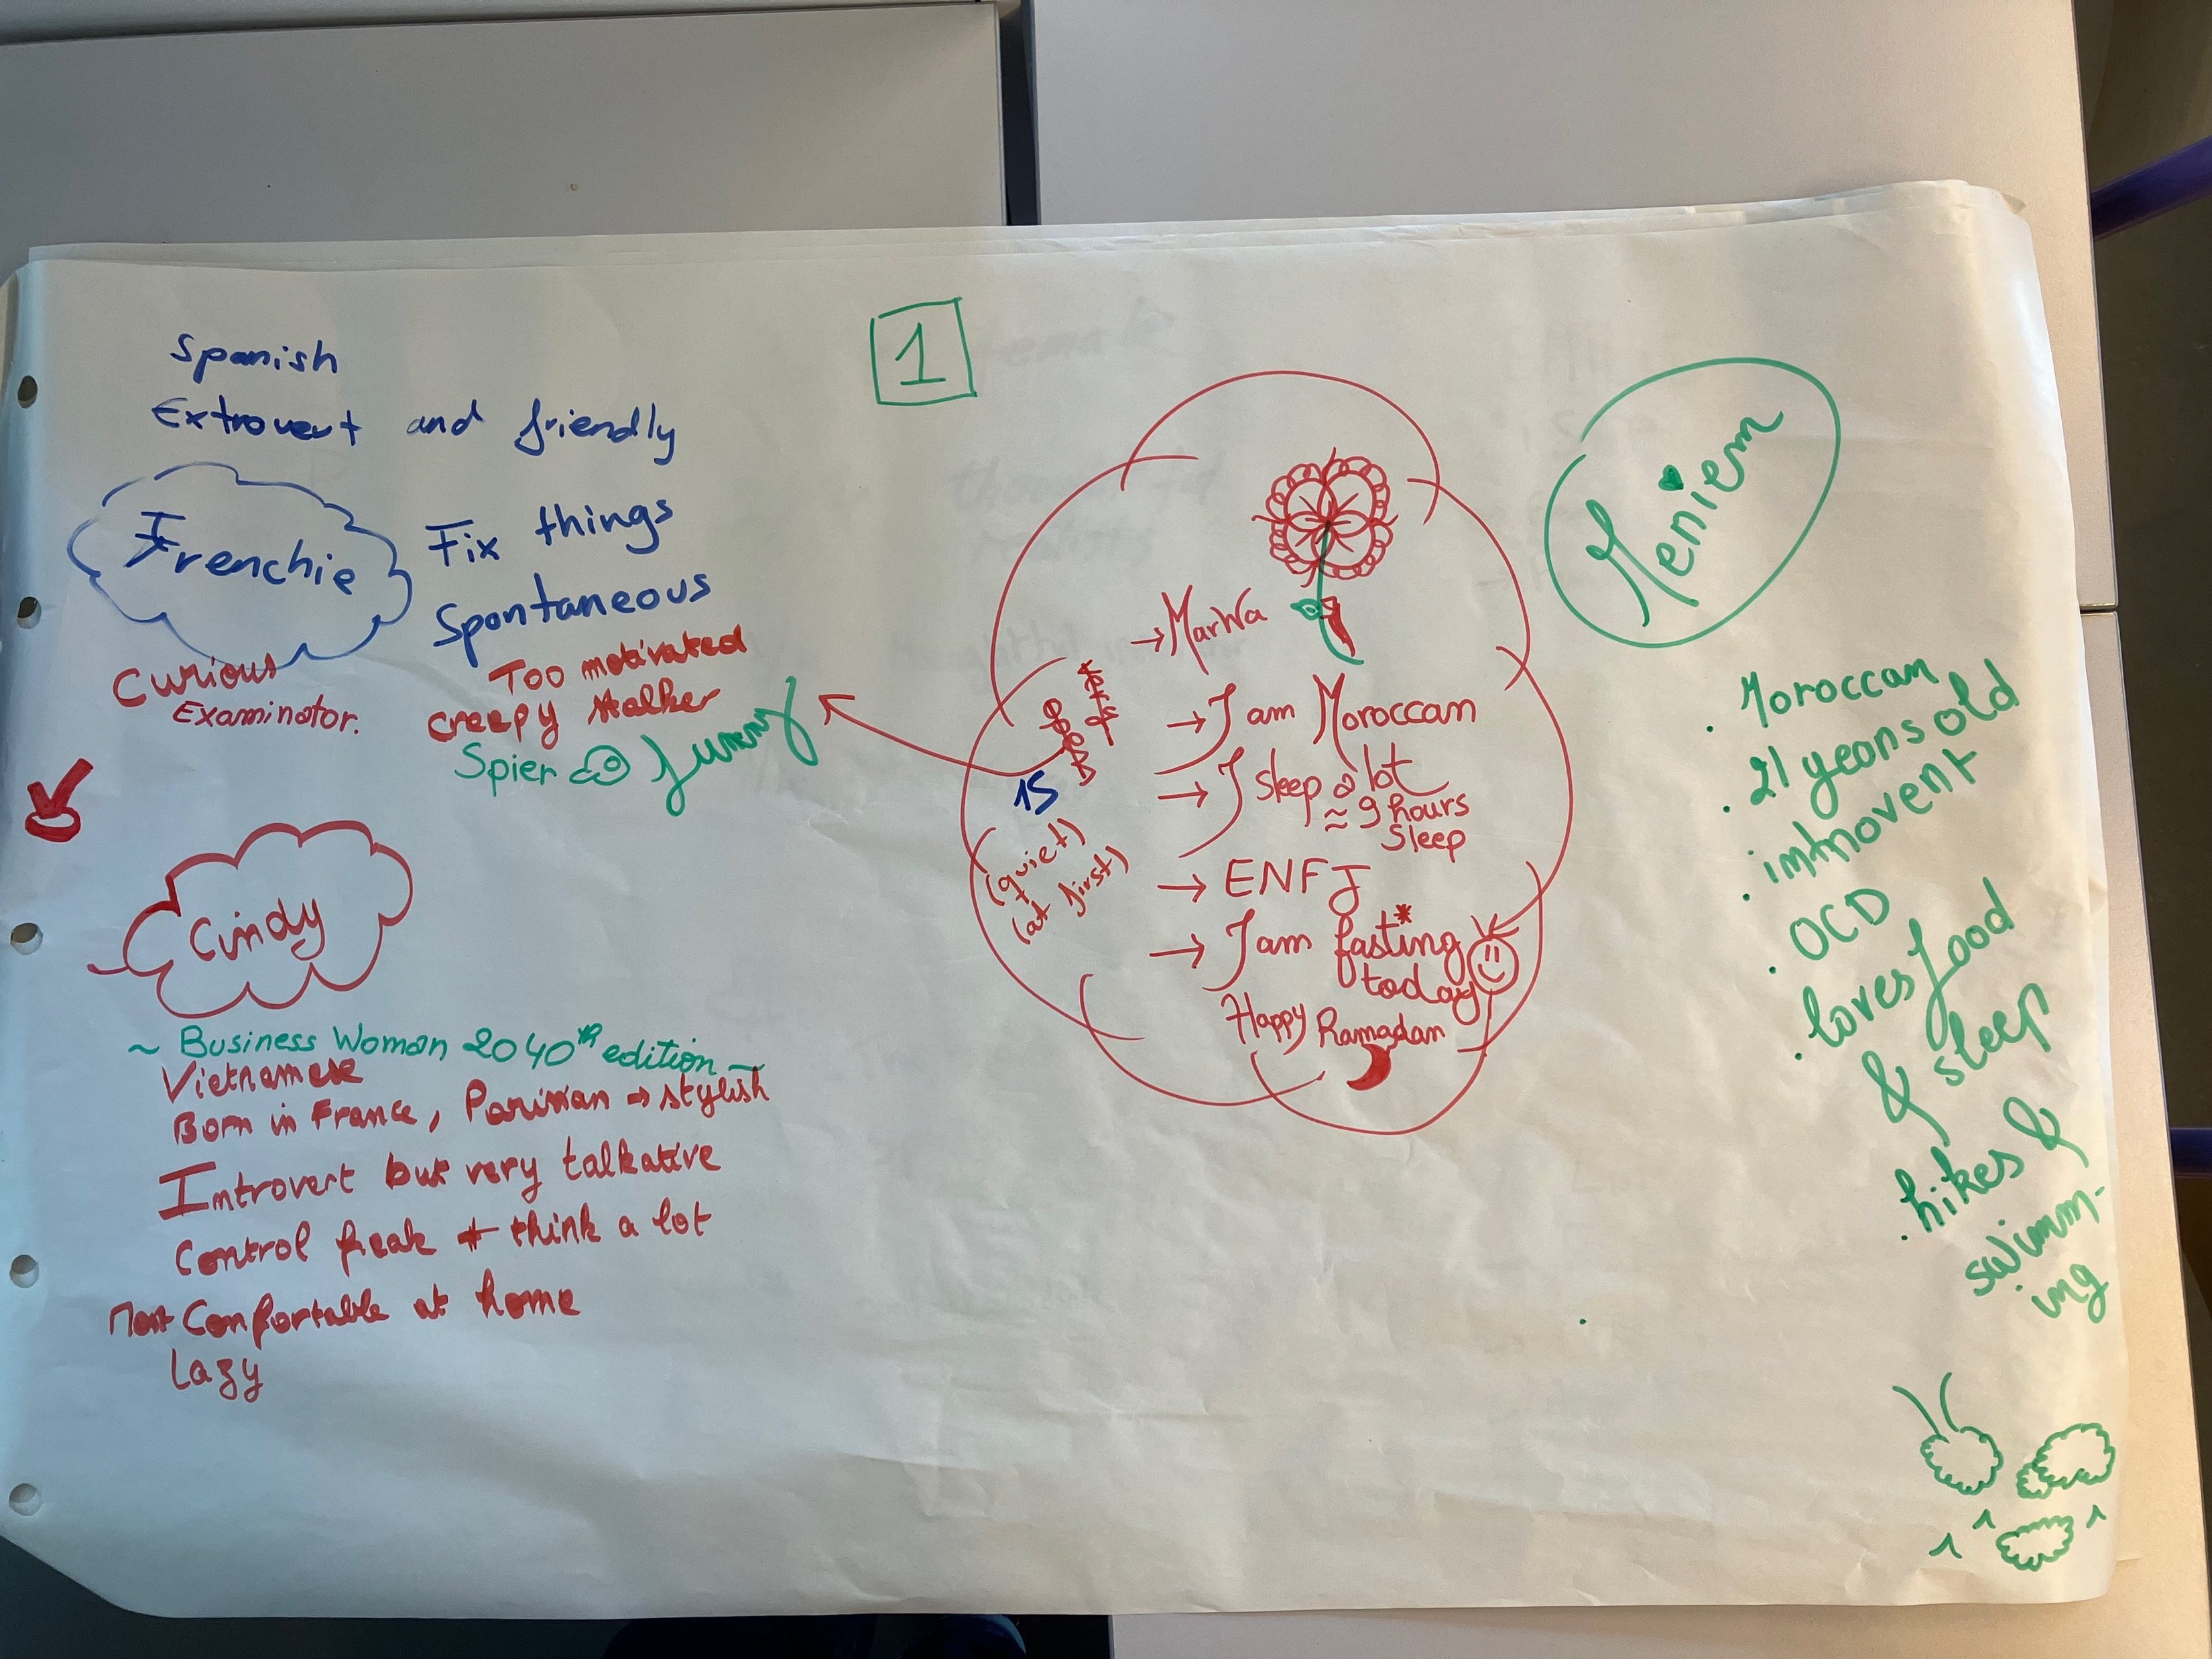 1
Spanish
Extrovert and friendly
Frenchie
Fix things
Spontaneous
Curious
Examinator.
Too motivated
creepy stalker
Spier
funny
Cindy
~ Business Woman 2040th edition ~
Vietnamese
Born in France, Parisian → stylish
Introvert but very talkative
Control freak + think a lot
Most Comfortable at home
Lazy
→ MarWa
→ I am Moroccan
→ I sleep a lot
≈ 9 hours
Sleep
→ ENFJ
→ I am fasting*
today
Happy Ramadan
15
(quiet)
(at first)
Meniem
. Moroccan
. 21 years old
. introvert
. OCD
. loves food
& sleep
. hikes &
swimm-
ing